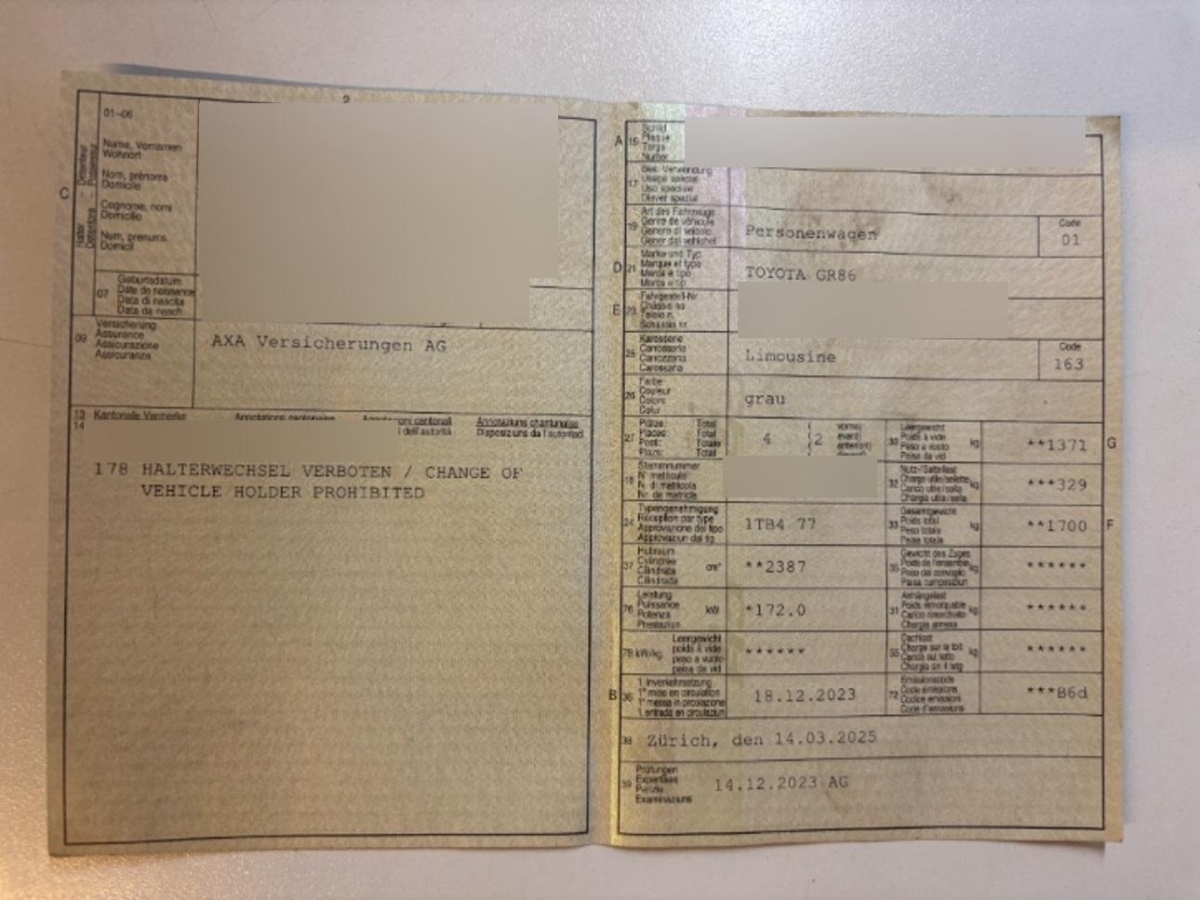 01-06
Name, Vornamen
Wohnort
Nom, prénoms
Domicile
Cognome, nomi
Domicilio
Num, prenums
Domicil
C
Halter Détenteur
Detentore Possessur
07
Geburtsdatum
Date de naissance
Data di nascita
Data da nasch.
09
Versicherung
Assurance
Assicurazione
Assicuranza
AXA Versicherungen AG
13 Kantonale Vermerke Annotations cantonales cantonali Annotaziuns chantunalas
14 dell'autorità Disposiziuns da l'autoritad
178 HALTERWECHSEL VERBOTEN / CHANGE OF
VEHICLE HOLDER PROHIBITED
A 15
Schild
Plaque
Targa
Numer
17
Bes. Verwendung
Usage spécial
Uso speciale
Diever spezial
19
Art des Fahrzeugs
Genre de véhicule
Genere di veicolo
Gener dal vehichel
Personenwagen
Code
01
D 21
Marke und Typ
Marque et type
Marca e tipo
Marca e tip
TOYOTA GR86
E 23
Fahrgestell-Nr
Châssis no
Telaio n.
Schassis nr.
25
Karosserie
Carrosserie
Carrozzeria
Carossaria
Limousine
Code
163
26
Farbe
Couleur
Colore
Color
grau
27
Plätze Total
Places Total
Posti Totale
Plazs Total
4
( 2
vorne)
avant)
anteriori)
davant)
30
Leergewicht
Poids à vide
Peso a vuoto
Paisa da vid
kg
**1371
G
18
Stammnummer
N° matricule
N. di matricola
Nr. da matricla
32
Nutz-/Sattellast
Charge utile/sellette
Carico utile/sella
Chargia utila/sella
kg
***329
24
Typengenehmigung
Réception par type
Approvazione del tipo
Approvaziun dal tip
1TB4 77
33
Gesamtgewicht
Poids total
Peso totale
Paisa totala
kg
**1700
F
37
Hubraum
Cylindrée
Cilindrata
Cilindrada
cm³
**2387
35
Gewicht des Zuges
Poids de l'ensemble
Peso del convoglio
Paisa cumposiziun
kg
******
76
Leistung
Puissance
Potenza
Prestaziun
kW
*172.0
31
Anhängelast
Poids remorquable
Carico rimorchiato
Chargia annexa
kg
******
78 kW/kg
Leergewicht
poids à vide
peso a vuoto
paisa da vid
******
55
Dachlast
Charge sur le toit
Carico sul tetto
Chargia sin il tetg
kg
******
B 36
1. Inverkehrsetzung
1re mise en circulation
1a messa in circolazione
1. entrada en circulaziun
18.12.2023
72
Emissionscode
Code émissions
Codice emissioni
Code d'emissiuns
***B6d
38 Zürich, den 14.03.2025
39
Prüfungen
Expertises
Perizie
Examinaziuns
14.12.2023 AG